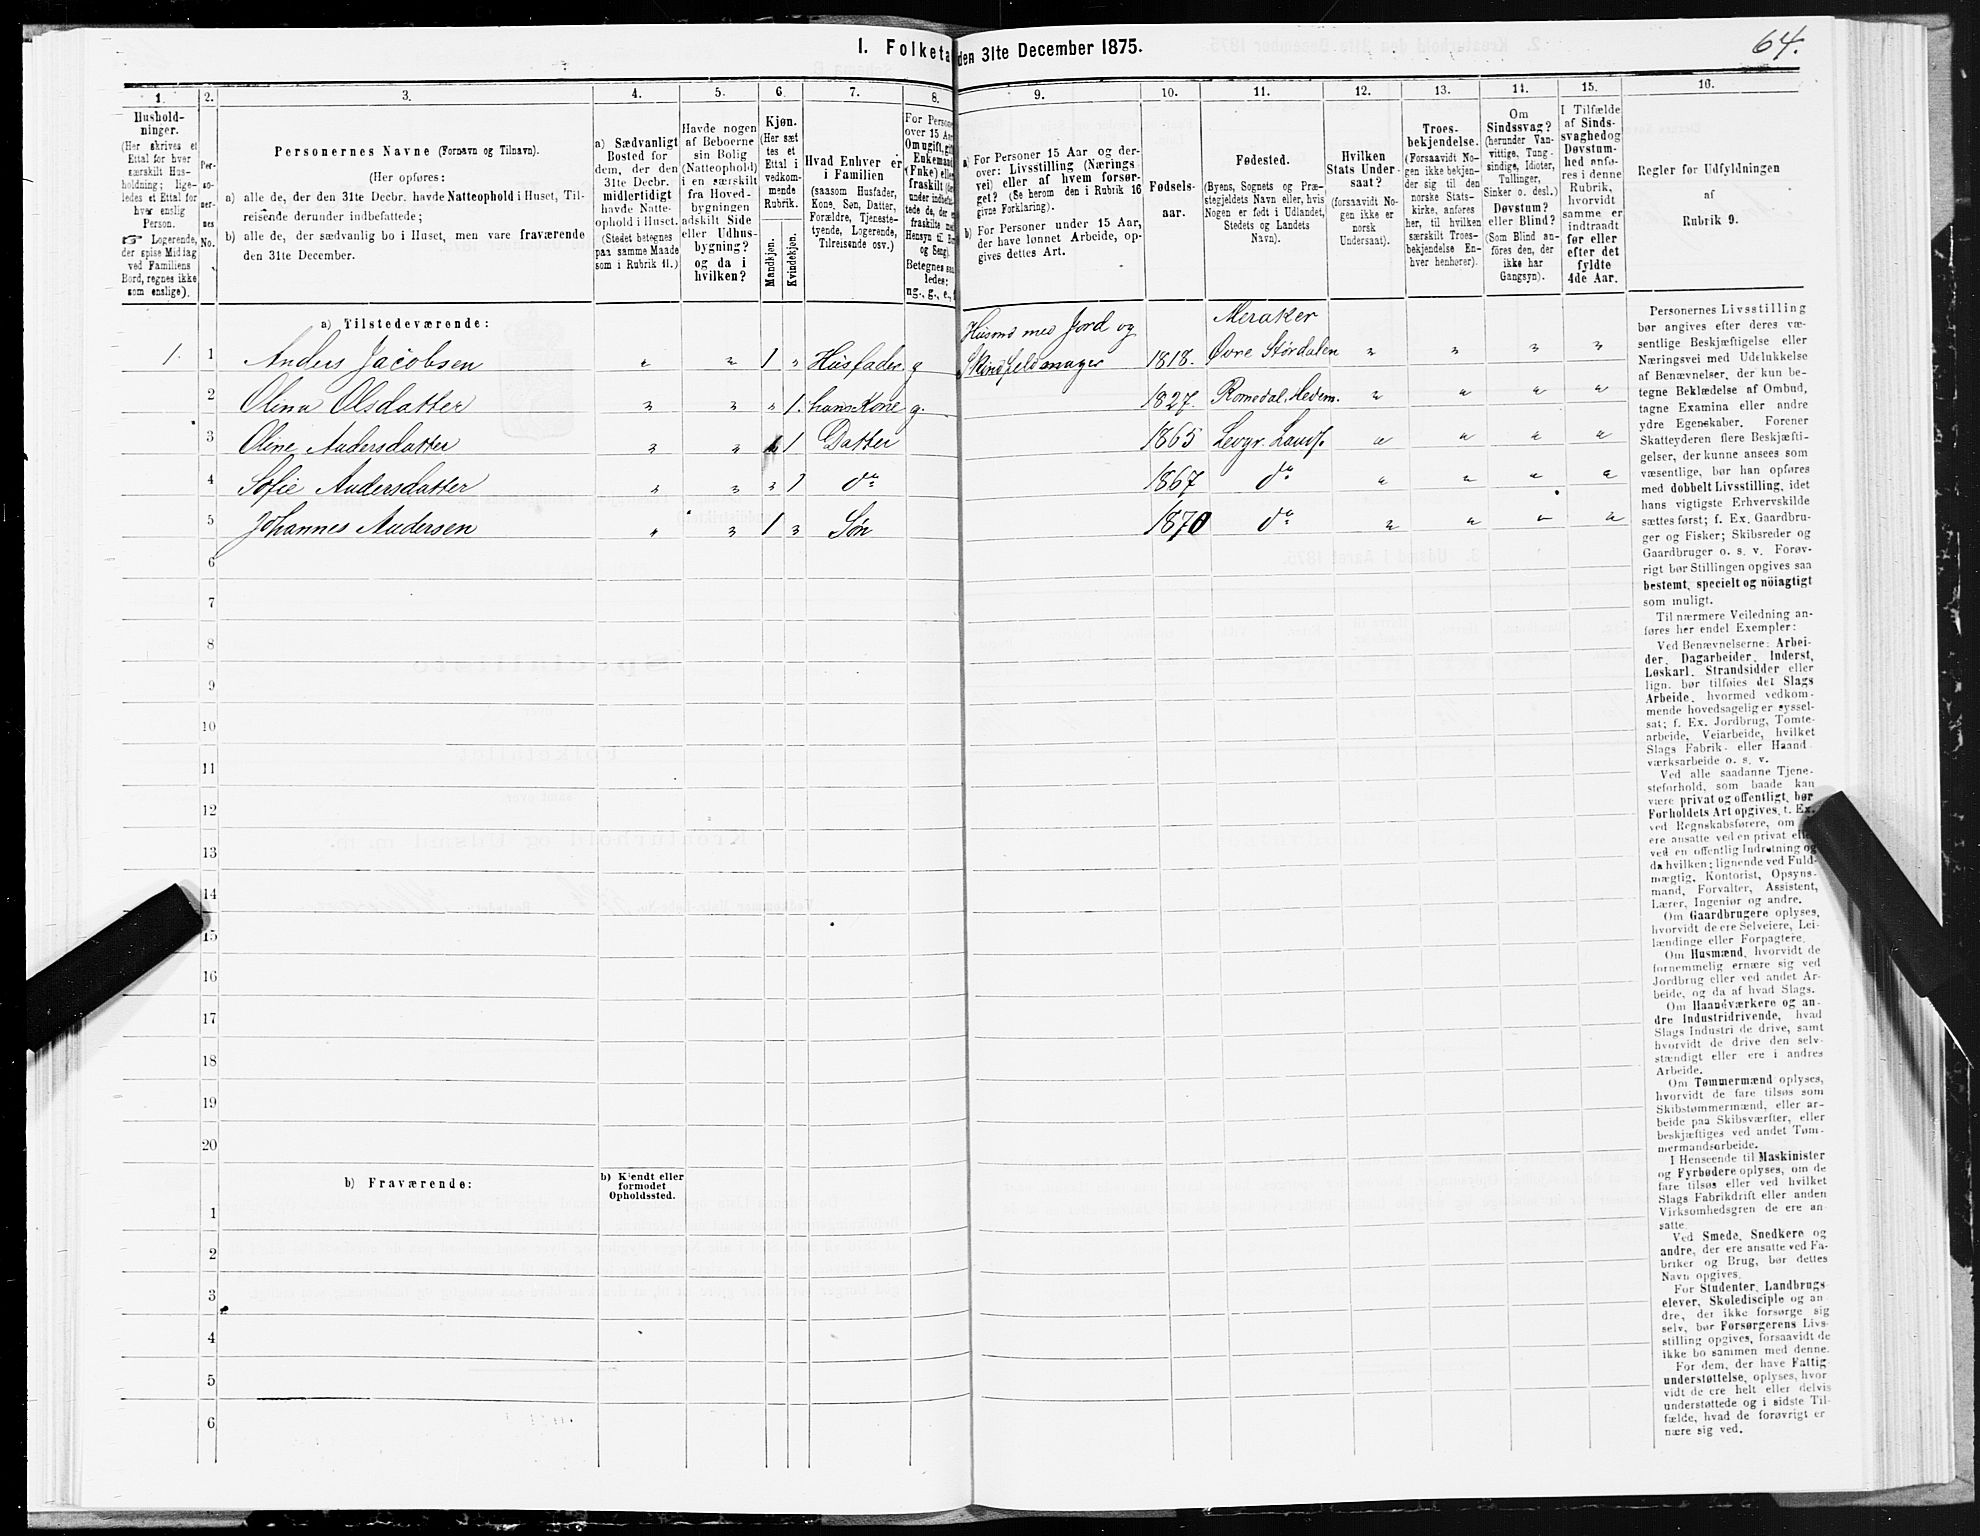 I. Folketa den 31te December 1875.
64.
1. 2. 3. 4. 5. 6. 7. 8. 9. 10. 11. 12. 13. 14. 15. 16.
Hushold-
ninger.
(Her skrives et
Ettal for hver
særskilt Hus-
holdning; lige-
ledes et Ettal for
hver enslig
Person.
☞ Logerende,
der spise Middag
ved Familiens
Bord, regnes ikke
som enslige).
Per-
so-
ner-
nes
No.
Personernes Navne (Fornavn og Tilnavn).
(Her opføres:
a) alle de, der den 31te Decbr. havde Natteophold i Huset, Til-
reisende derunder indbefattede;
b) alle de, der sædvanlig bo i Huset, men vare fraværende
den 31te December.
a) Sædvanligt
Bosted for
dem, der den
31te Decbr.
midlertidigt
havde Natte-
ophold i Huset
(Stedet betegnes
paa samme Maade
som i Rubrik 11.)
Havde nogen
af Beboerne
sin Bolig
(Natteophold)
i en særskilt
fra Hoved-
bygningen
adskilt Side
eller Udhus-
bygning?
og da i
hvilken?
Kjøn.
(Her sæt
tes et
Ettal i
vedkom-
mende
Rubrik.
Mandkjøn.
Kvindekjøn.
Hvad Enhver er
i Familien
(saasom Husfader,
Kone, Søn, Datter,
Forældre, Tjeneste-
tyende, Logerende,
Tilreisende osv.)
For Persone
over 15 Aar
Om ugift, gift
Enkemand
(Enke) eller
fraskilt
under indbefat-
tede de, der
fraskilte m
Hensyn til B
og Seng).
Betegnes saa
ledes:
ug., g., e., f
a) For Personer 15 Aar og der-
over: Livsstilling (Nærings
vei) eller af hvem forsør-
get? (Se herom den i Rubrik 16
givne Forklaring).
b) For Personer under 15 Aar,
der have lønnet Arbeide, op-
gives dettes Art.
Fødsels-
aar.
Fødested.
(Byens, Sognets og Præ-
stegjeldets Navn eller, hvis
Nogen er født i Udlandet,
Stedets og Landets
Navn).
Hvilken
Stats Under
saat?
(forsaavidt No-
gen ikke er
norsk
Undersaat).
Troes-
bekjendelse.
(Forsaavidt No-
gen ikke bekjen-
der sig til den
norske Stats-
kirke, anføres
her, til hvilken
særskilt Troes-
bekjendelse En-
hver henhører).
Om
Sindssvag?
(herunder Van-
vittige, Tung-
sindige, Idioter,
Tullinger,
Sinker o. desl.)
Døvstum?
eller Blind?
(Som Blind an-
føres den, der
ikke har
Gangsyn).
I Tilfælde
af Sinds-
svaghed og
Døvstum-
hed anfø-
res i denne
Rubrik,
hvorvidt
samme er
indtraadt
før eller
efter det
fyldte
4de Aar.
Regler for Udfyldningen
af
Rubrik 9.
a) Tilstedeværende:
Husmd med Jord og Meraker
1. 1 Anders Jacobsen " " 1 " Husfader g Skindfeldmager 1818. Øvre Størdalen " " " "
2 Olina Olsdatter " " " 1. hans Kone g. 1827. Romedal, Hedem. " " " "
3 Oline Andersdatter " " 1 Datter 1865 Levgr. Landf. " " " "
4 Sofie Andersdatter " " " 1 do 1867 do " " " "
5 Johannes Andersen " " 1 " Søn 1870 do " " " "
6
7
8
9
10
11
12
13
14
15
16
17
18
19
20
b) Fraværende:
b) Kjendt eller
formodet
Opholdssted.
1
2
3
4
5
6
Personernes Livsstilling
bør angives efter deres væ-
sentlige Beskjæftigelse eller
Næringsvei med Udelukkelse
af Benævnelser, der kun be-
tegne Beklædelse af Ombud,
tagne Examina eller andre
ydre Egenskaber. Forener
Skatteyderen flere Beskjæfti-
gelser, der kunne ansees som
væsentlige, bør han opføres
med dobbelt Livsstilling, idet
hans vigtigste Erhvervskilde
sættes først; f. Ex. Gaardbru-
ger og Fisker; Skibsreder og
Gaardbruger o. s. v. Forøv-
rigt bør Stillingen opgives saa
bestemt, specielt og nöiagtigt
som muligt.
Til nærmere Veiledning an-
føres her endel Exempler:
Ved Benævnelserne: Arbei-
der, Dagarbeider, Inderst,
Løskarl, Strandsidder eller
lign. bør tilføies det Slags
Arbeide, hvormed vedkom-
mende hovedsagelig er syssel-
sat; f. Ex. Jordbrug, Tomte-
arbeide, Veiarbeide, hvilket
Slags Fabrik- eller Haand-
værksarbeide o. s. v.
Ved alle saadanne Tjene-
steforhold, som baade kan
være privat og offentligt, bør
Forholdets Art opgives, t. Ex.
ved Regnskabsførere, om
ere ansatte ved en privat elle
ved en offentlig Indretning og
da hvilken; lignende ved Fuld-
mægtig, Kontorist, Opsyns-
mand, Forvalter, Assistent,
Lærer, Ingeniør og andre.
Om Gaardbrugere oplyses,
hvorvidt de ere Selveiere, Lei-
lændinge eller Forpagtere.
Om Husmænd, hvorvidt de
fornemmelig ernære sig ved
Jordbrug eller ved andet Ar-
beide, og da af hvad Slags.
Om Haandværkere og an-
dre Industridrivende, hvad
Slags Industri de drive, samt
hvorvidt de drive den selv-
stændigt eller ere i andres
Arbeide.
Om Tømmermænd oplyses,
hvorvidt de fare tilsøs som
Skibstømmermænd, eller ar-
beide paa Skibsværfter, eller
beskjæftiges ved andet Tøm-
mermandsarbeide.
I Henseende til Maskinister
og Fyrbødere oplyses, om de
fare tilsøs eller ved hvilket
Slags Fabrikdrift eller anden
Virksomhedsgren de ere an-
satte.
Ved Smede, Snedkere og
andre, der ere ansatte ved Fa-
briker og Brug, bør dettes
Navn opgives.
For Studenter, Landbrugs
elever, Skoledisciple og an
dre, der ikke forsørge sig
selv, bør Forsørgerens Livs-
stilling opgives, forsaavidt de
ikke bo sammen med denne.
For dem, der have Fattig-
understøttelse, oplyses, hvor
vidt de ere helt eller delvis
understøttede og i sidste Til-
fælde, hvad de forøvrigt er
nære sig ved.